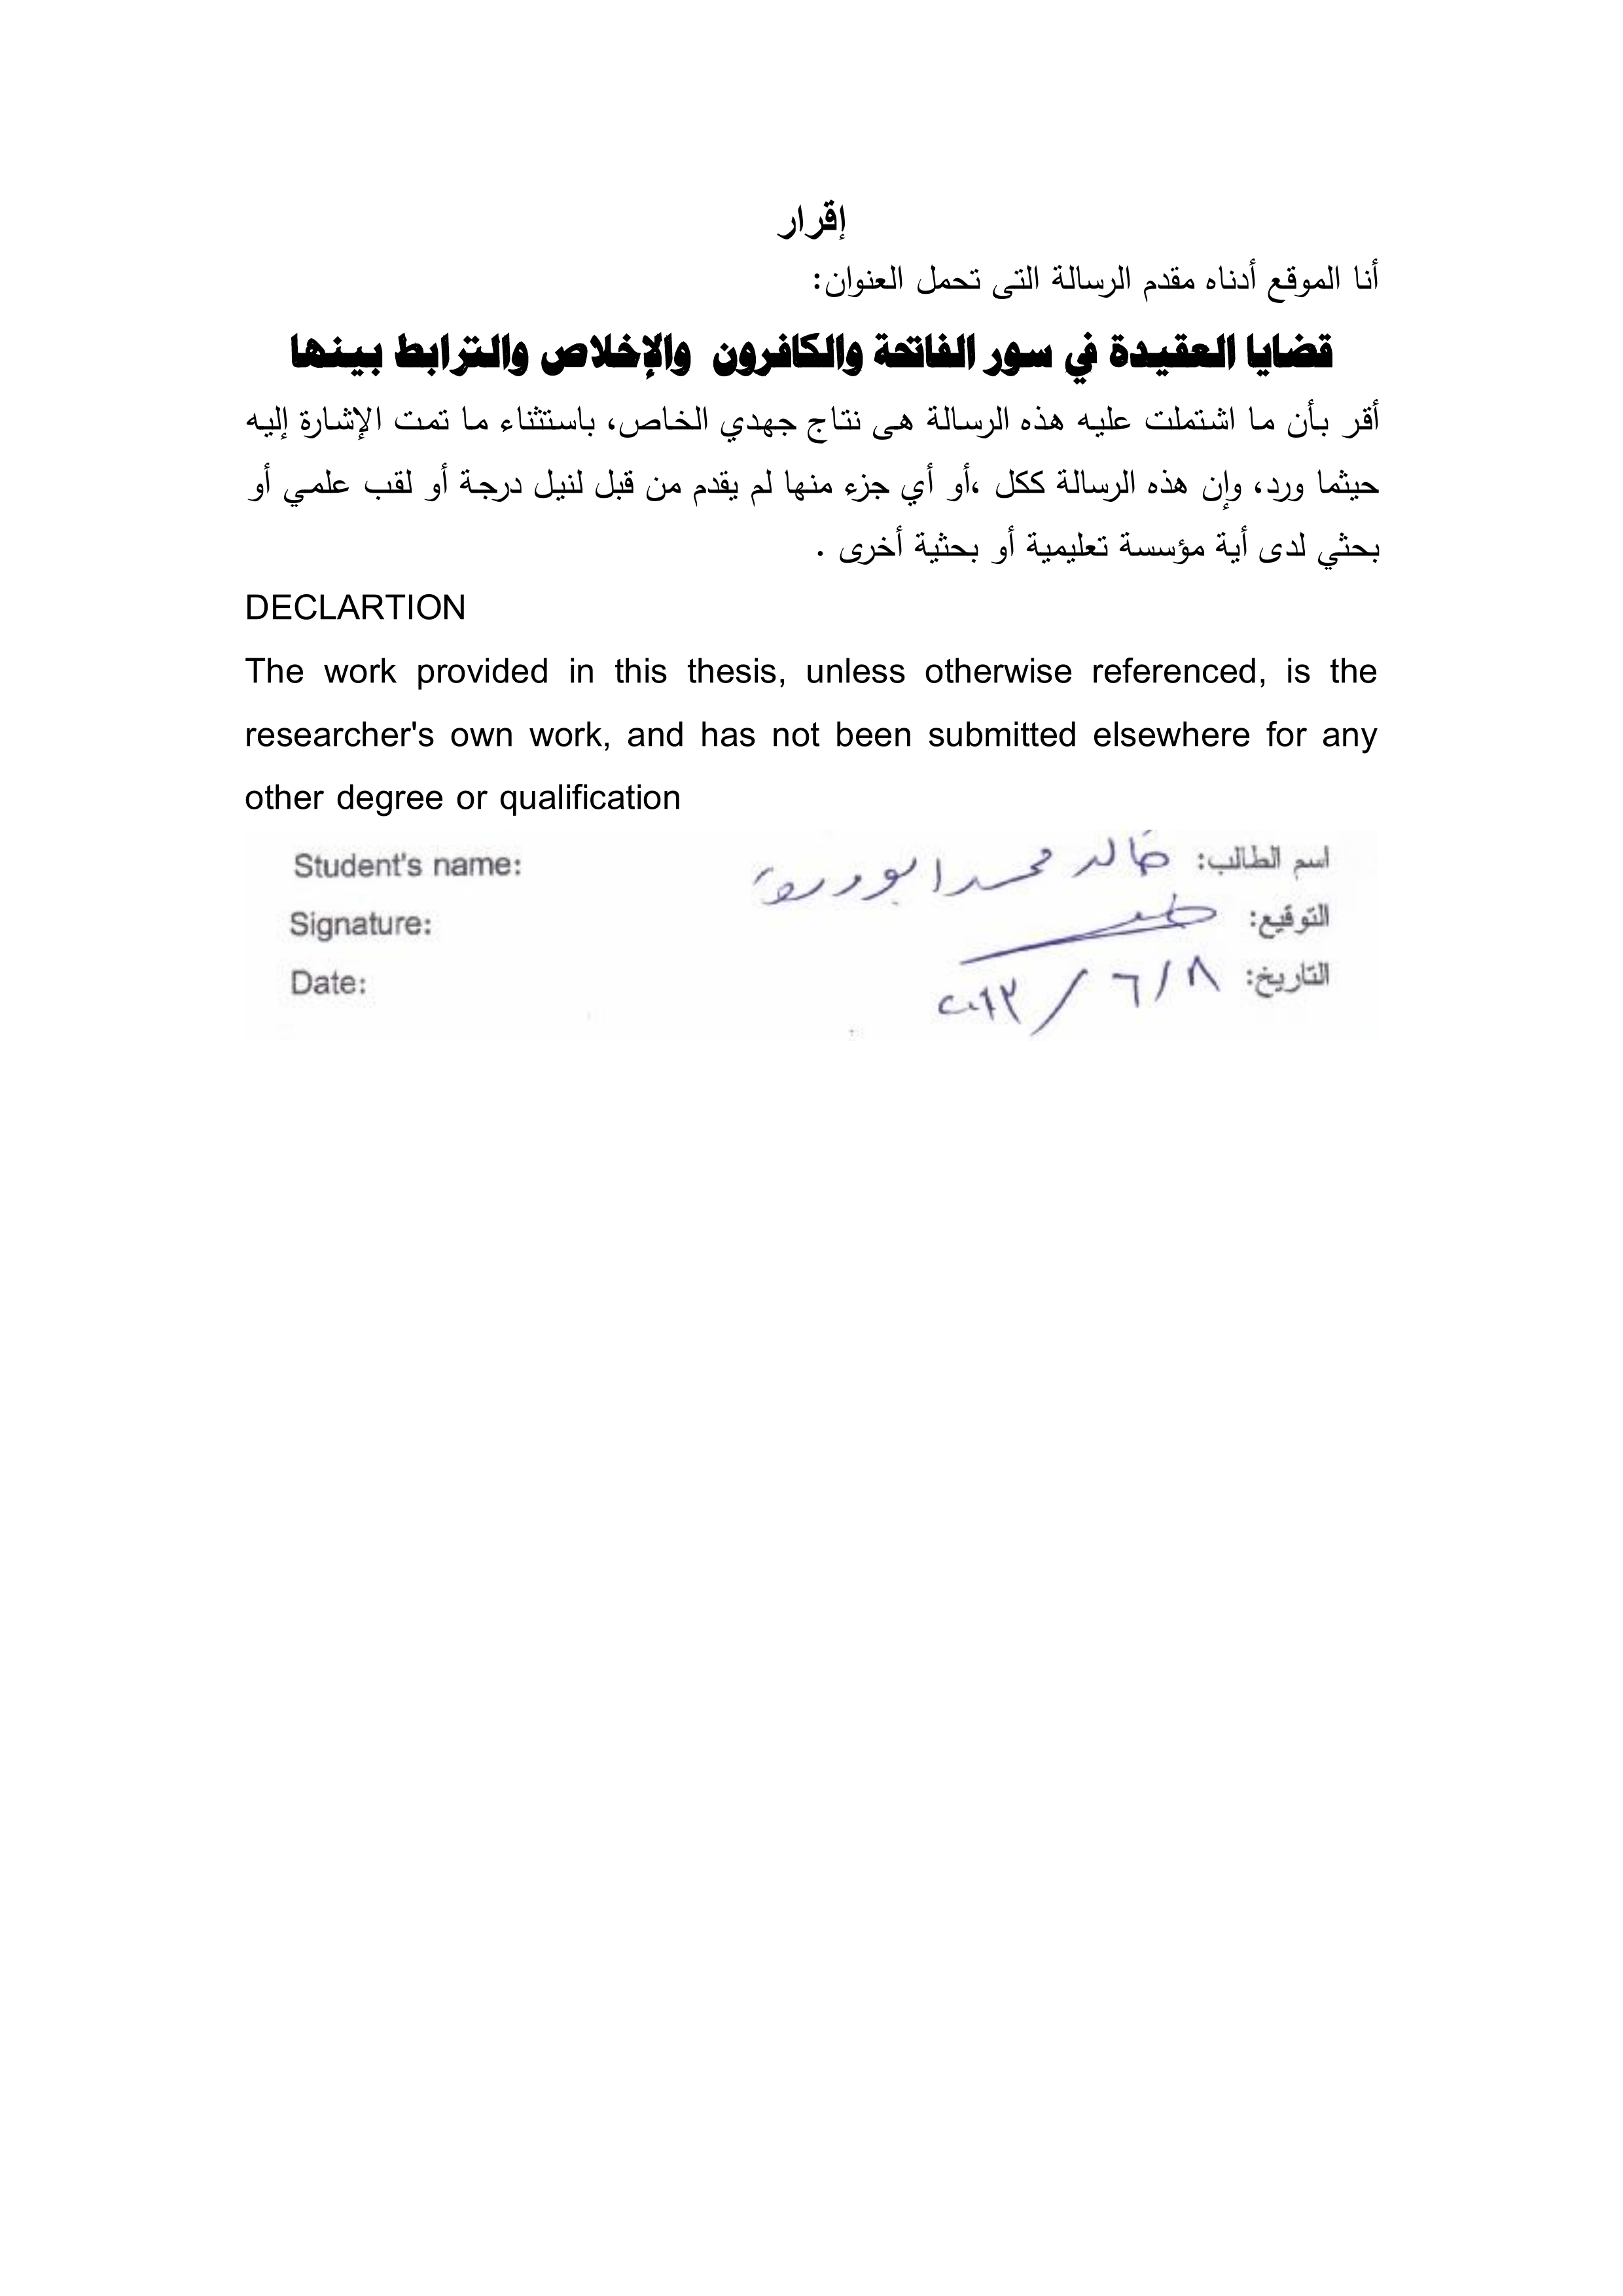 إقرار
أنا الموقع أدناه مقدم الرسالة التى تحمل العنوان:
قضايا العقيدة في سور الفاتحة والكافرون والإخلاص والترابط بينها
أقر بأن ما اشتملت عليه هذه الرسالة هى نتاج جهدي الخاص، باستثناء ما تمت الإشارة إليه
حيثما ورد، وإن هذه الرسالة ككل ،أو أي جزء منها لم يقدم من قبل لنيل درجة أو لقب علمي أو
بحثي لدى أية مؤسسة تعليمية أو بحثية أخرى .
DECLARTION
The work provided in this thesis, unless otherwise referenced, is the
researcher's own work, and has not been submitted elsewhere for any
other degree or qualification
Student's name: اسم الطالب: خالد محمد ابو
Signature: التوقيع:
Date: التاريخ: ٨/٦/٢٠١٣